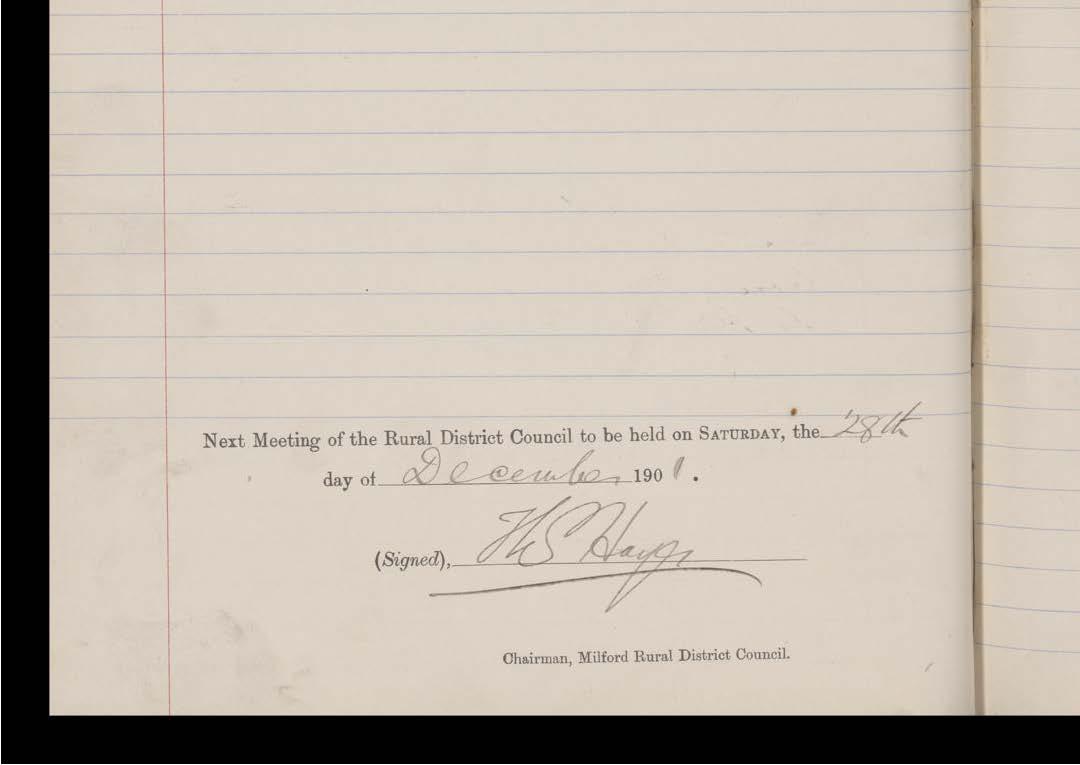 Next Meeting of the Rural District Council to be held on SATURDAY, the 28th
day of December 1901.
(Signed), H S Hayes
Chairman, Milford Rural District Council.